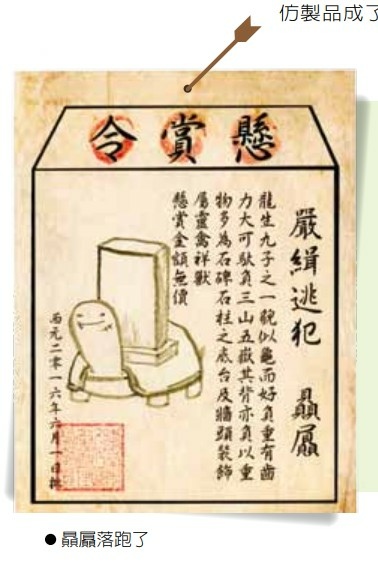 仿製品成了
懸賞令
嚴緝逃犯 贔屭
龍生九子之一貌似龜而好負重有齒
力大可馱負三山五嶽其背亦負以重
物多為石碑石柱之底台及牆頭裝飾
屬靈禽祥獸
懸賞金額無價
西元二零一六年六月一日
●贔屭落跑了